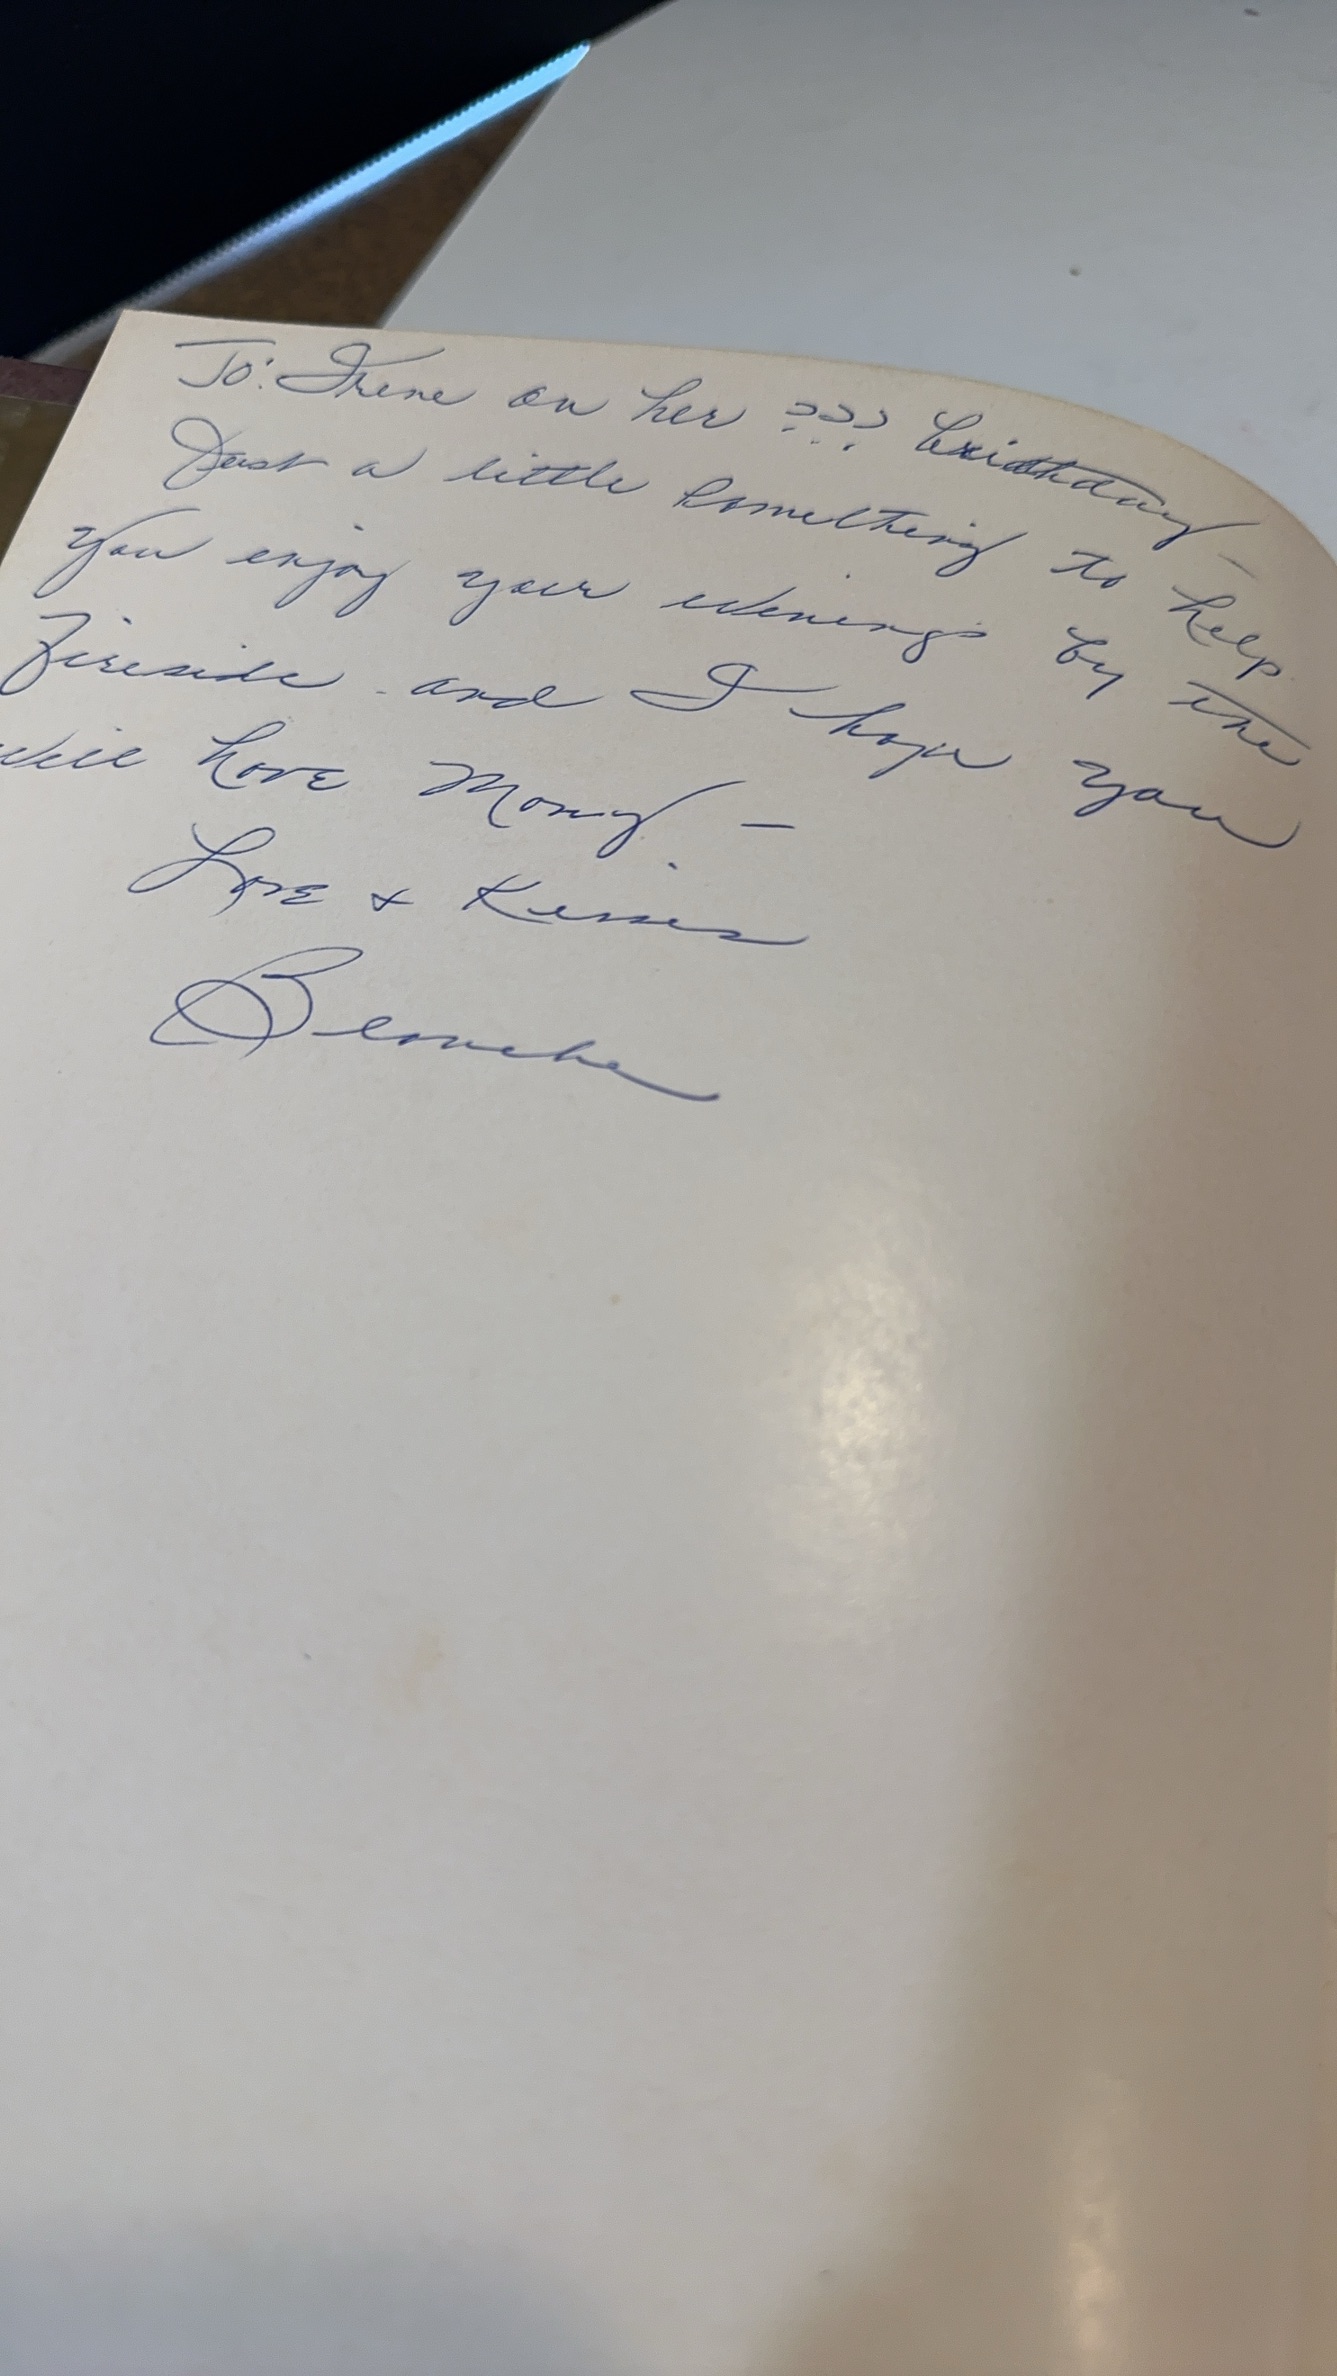 To: Irene on her ??? birthday —
Just a little something to help
you enjoy your evenings by the
Fireside - and I hope you
will have many —
Love & Kisses
Blanche